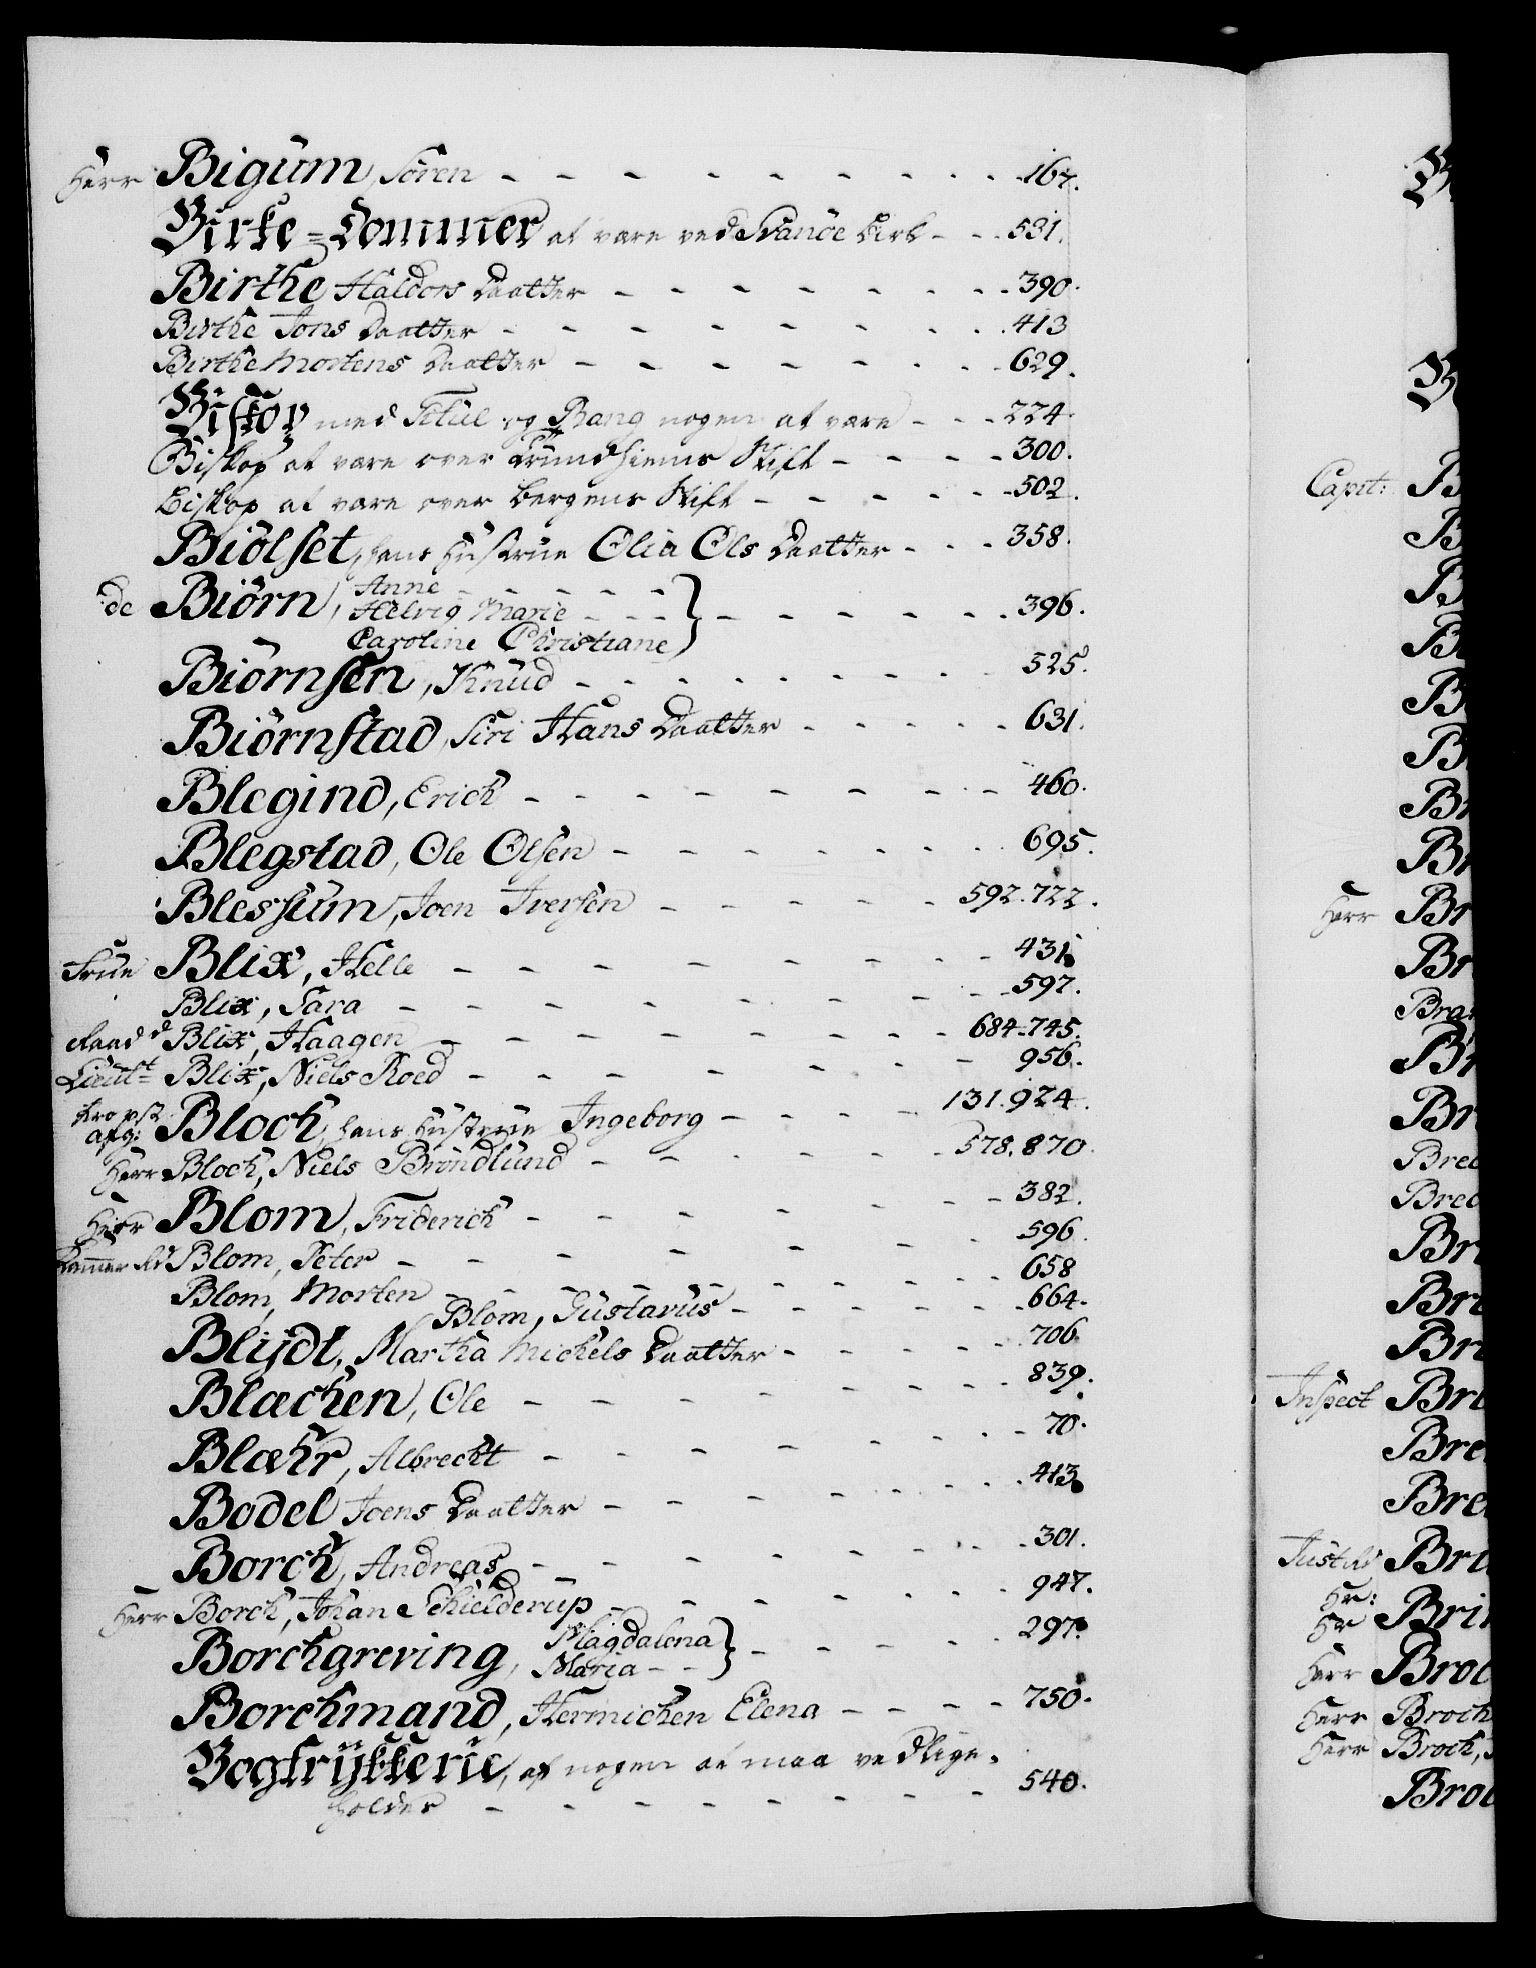 Herr Bigum, Sören - - - - - - - - - - 167.
Birke-Dommer at være ved Svanöe Birk - - - 531.
Birthe Haldors Daatter - - - - - - - - 390.
Birthe Jons Daatter - - - - - - - - - 413
Birthe Mortens Daatter - - - - - - - - 629.
Biskop med Titul og Rang nogen at være - - - 224.
Biskop at være over Trundhiems Stift - - - - 300.
Biskop at være over Bergens Stift - - - - - 502.
Biölset, hans Hustrue Olia Ols Daatter - - - 358.
de Biörn, Anne - - - - -
Helvig Marie - - - } - - - - - - 396.
Caroline Christiane
Biörnsen, Knud - - - - - - - - 525.
Biörnstad, Siri Hans Daatter - - - - - 631.
Blegind, Erich - - - - - - - - - 460.
Blegstad, Ole Olsen - - - - - - - - 695.
Blessum, Joen Iversen - - - - - 592. 722.
Frue Blix, Helle - - - - - - - - - 431.
Blix, Sara - - - - - - - - - - 597.
Raad Blix, Haagen - - - - - - - - 684. 745.
Lieut Blix, Niels Roed - - - - - - - - 956.
Provst afg: Bloch, hans Hustrue Ingeborg - - - - 131. 924.
Herr Bloch, Niels Bröndlund - - - - - - 578. 870.
Herr Blom, Friderich - - - - - - - - 382.
Cammer Rd Blom, Peter - - - - - - - - 596.
Blom, Morten - - - - - - - - - 658
Blom, Gustavus - - - - - - 664.
Blijdt, Martha Michels Daatter - - - - - 706.
Blachen, Ole - - - - - - - - - 839.
Blæhr, Albrecht - - - - - - - - 70.
Bodel Joens Daatter - - - - - - - - 413
Borch, Andreas - - - - - - - - 301.
Herr Borch, Johan Schielderup - - - - - - - 947.
Borchgreving, Magdalena } - - - - - 297.
Maria - -
Borchmand, Hermichen Elena - - - - 750.
Bogtrÿkkerie, af nogen at maa vedlige-
holdes - - - - - - - - 540.
Capit:
Herr
Bra
Brec
Brec
Inspect
Justitsrd
Hr:
Hr Brin
Herr Broc
Herr Broch
Herr Broch,
Broc